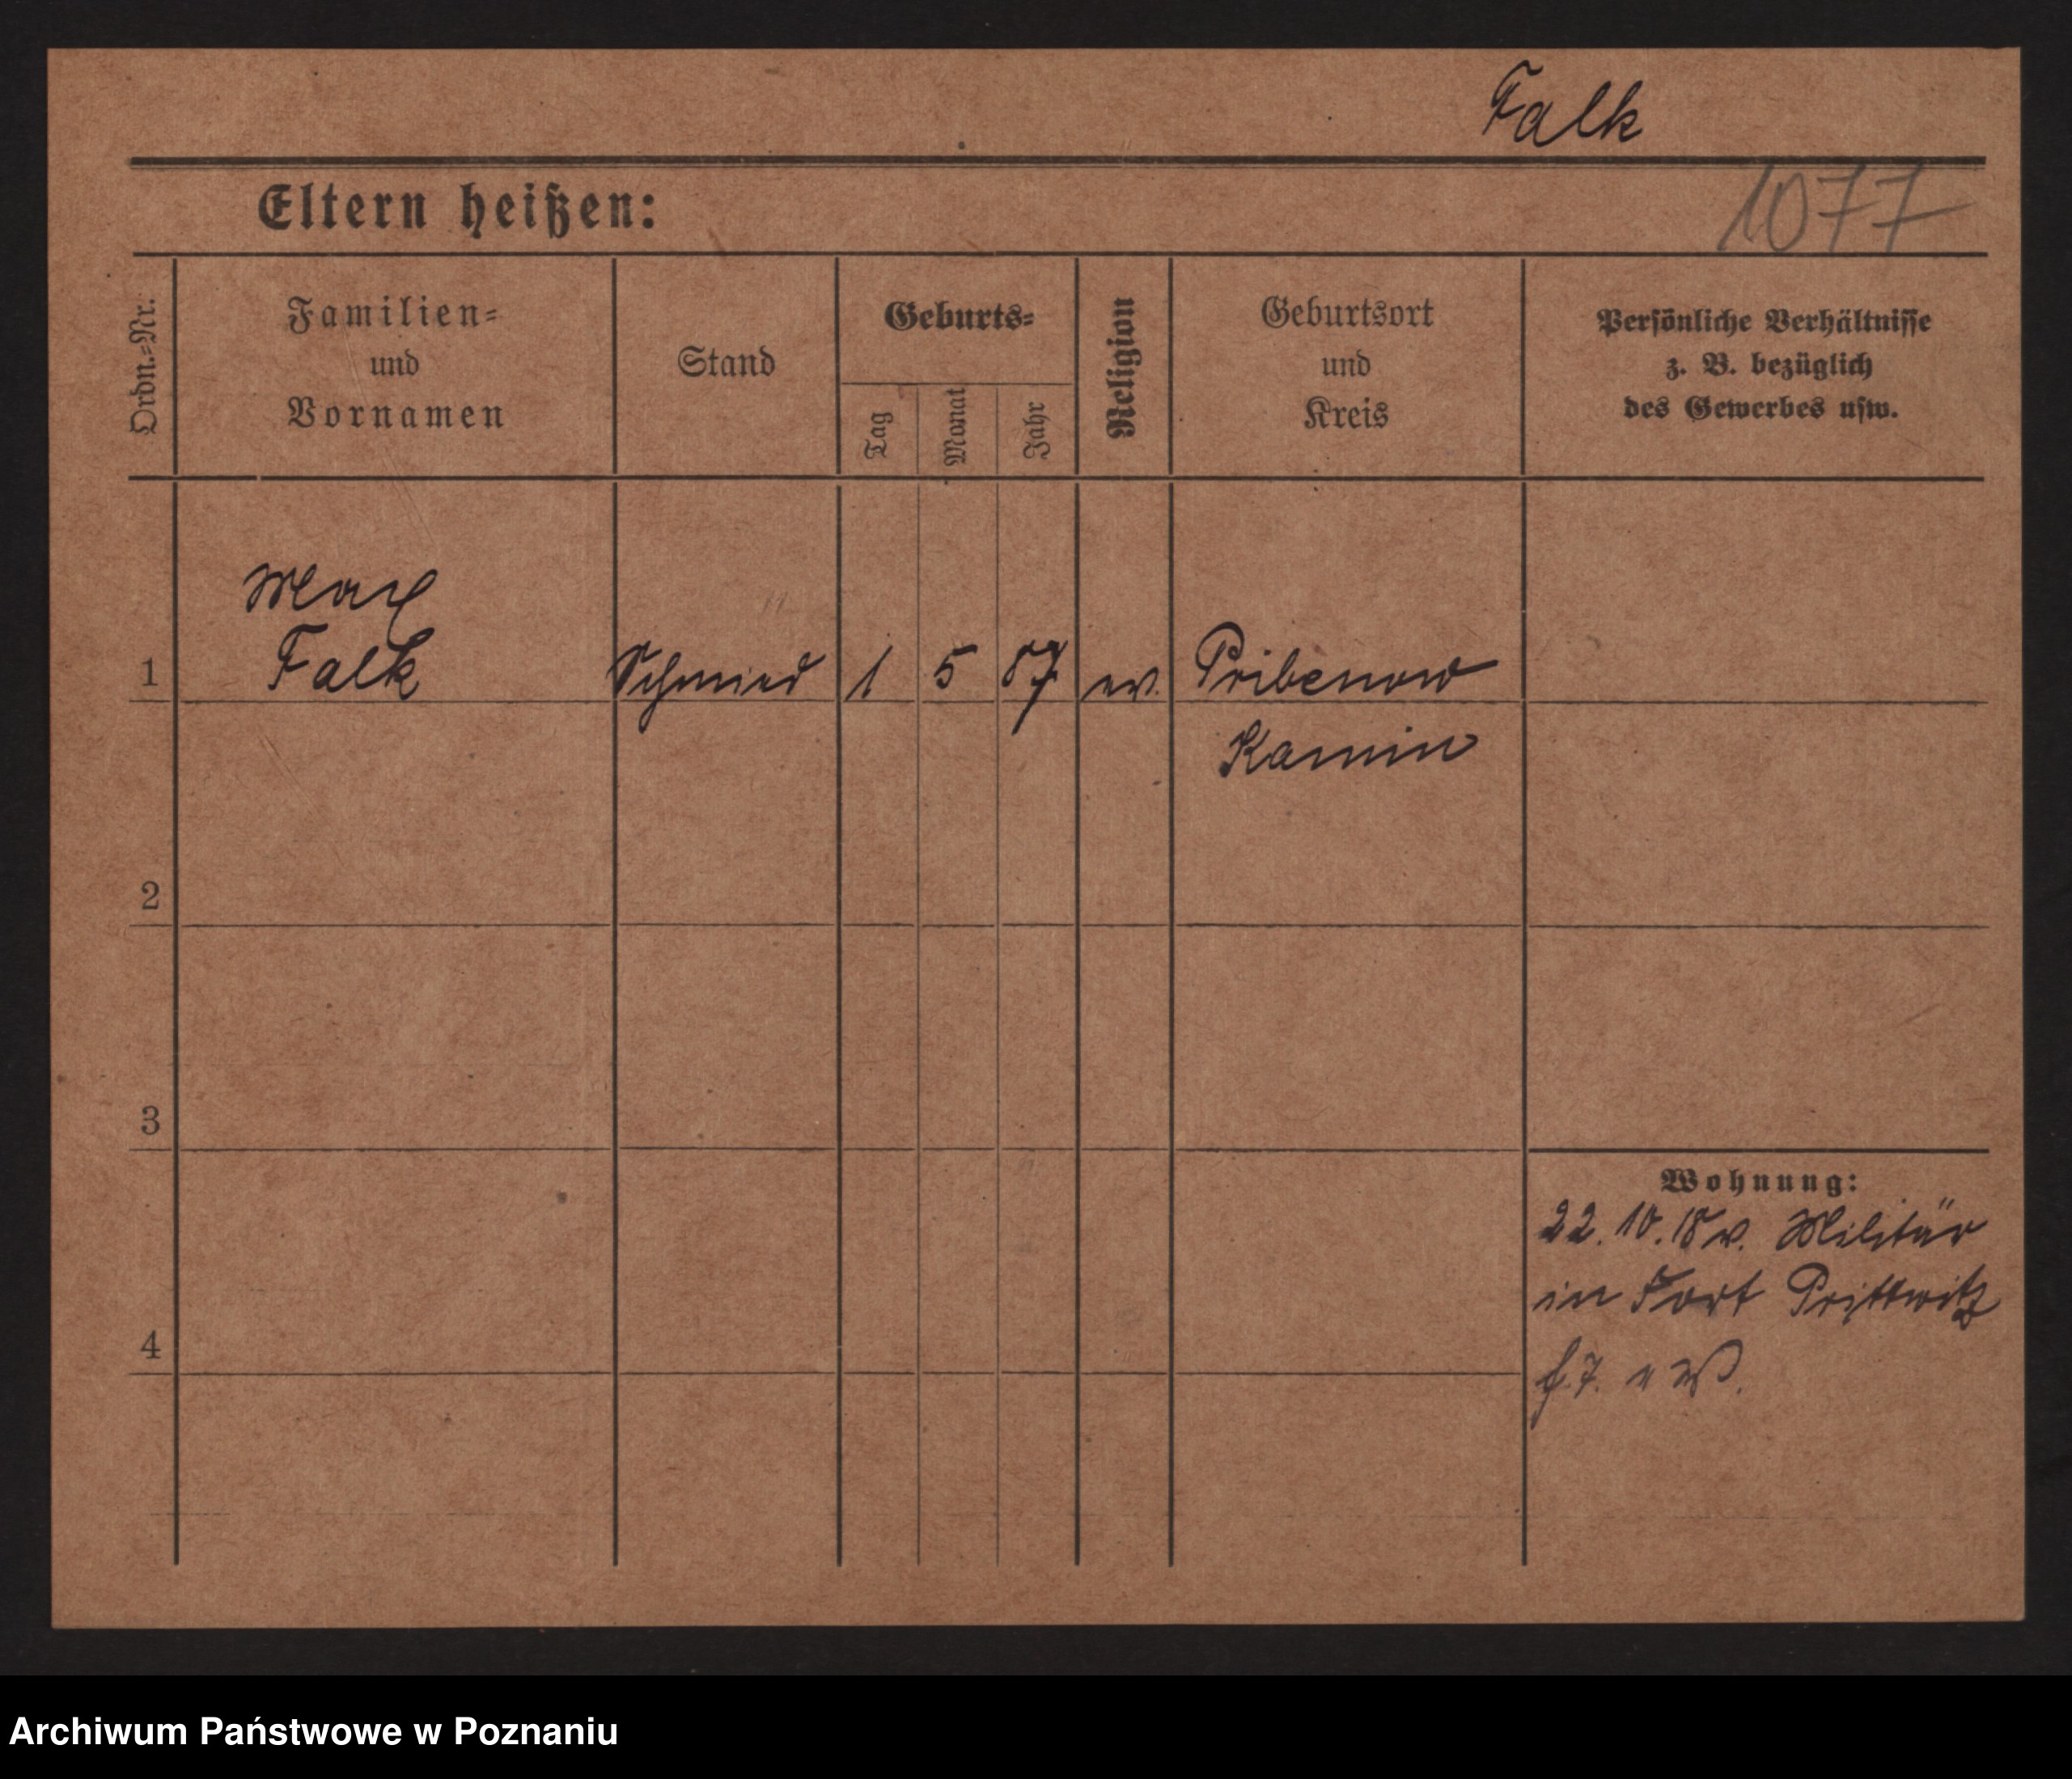 Falk
Eltern heißen:
1077
Ordn.-Nr.
Familien-
und
Vornamen
Stand
Geburts-
Tag
Monat
Jahr
Religion
Geburtsort
und
Kreis
Persönliche Verhältnisse
z. B. bezüglich
des Gewerbes usw.
Max
1 Falk Schmied 1 5 87 ev. Pribenow
Kamin
2
3
Wohnung:
22.10.18 v. Militär
in Fort Prittwitz
4
Archiwum Państwowe w Poznaniu